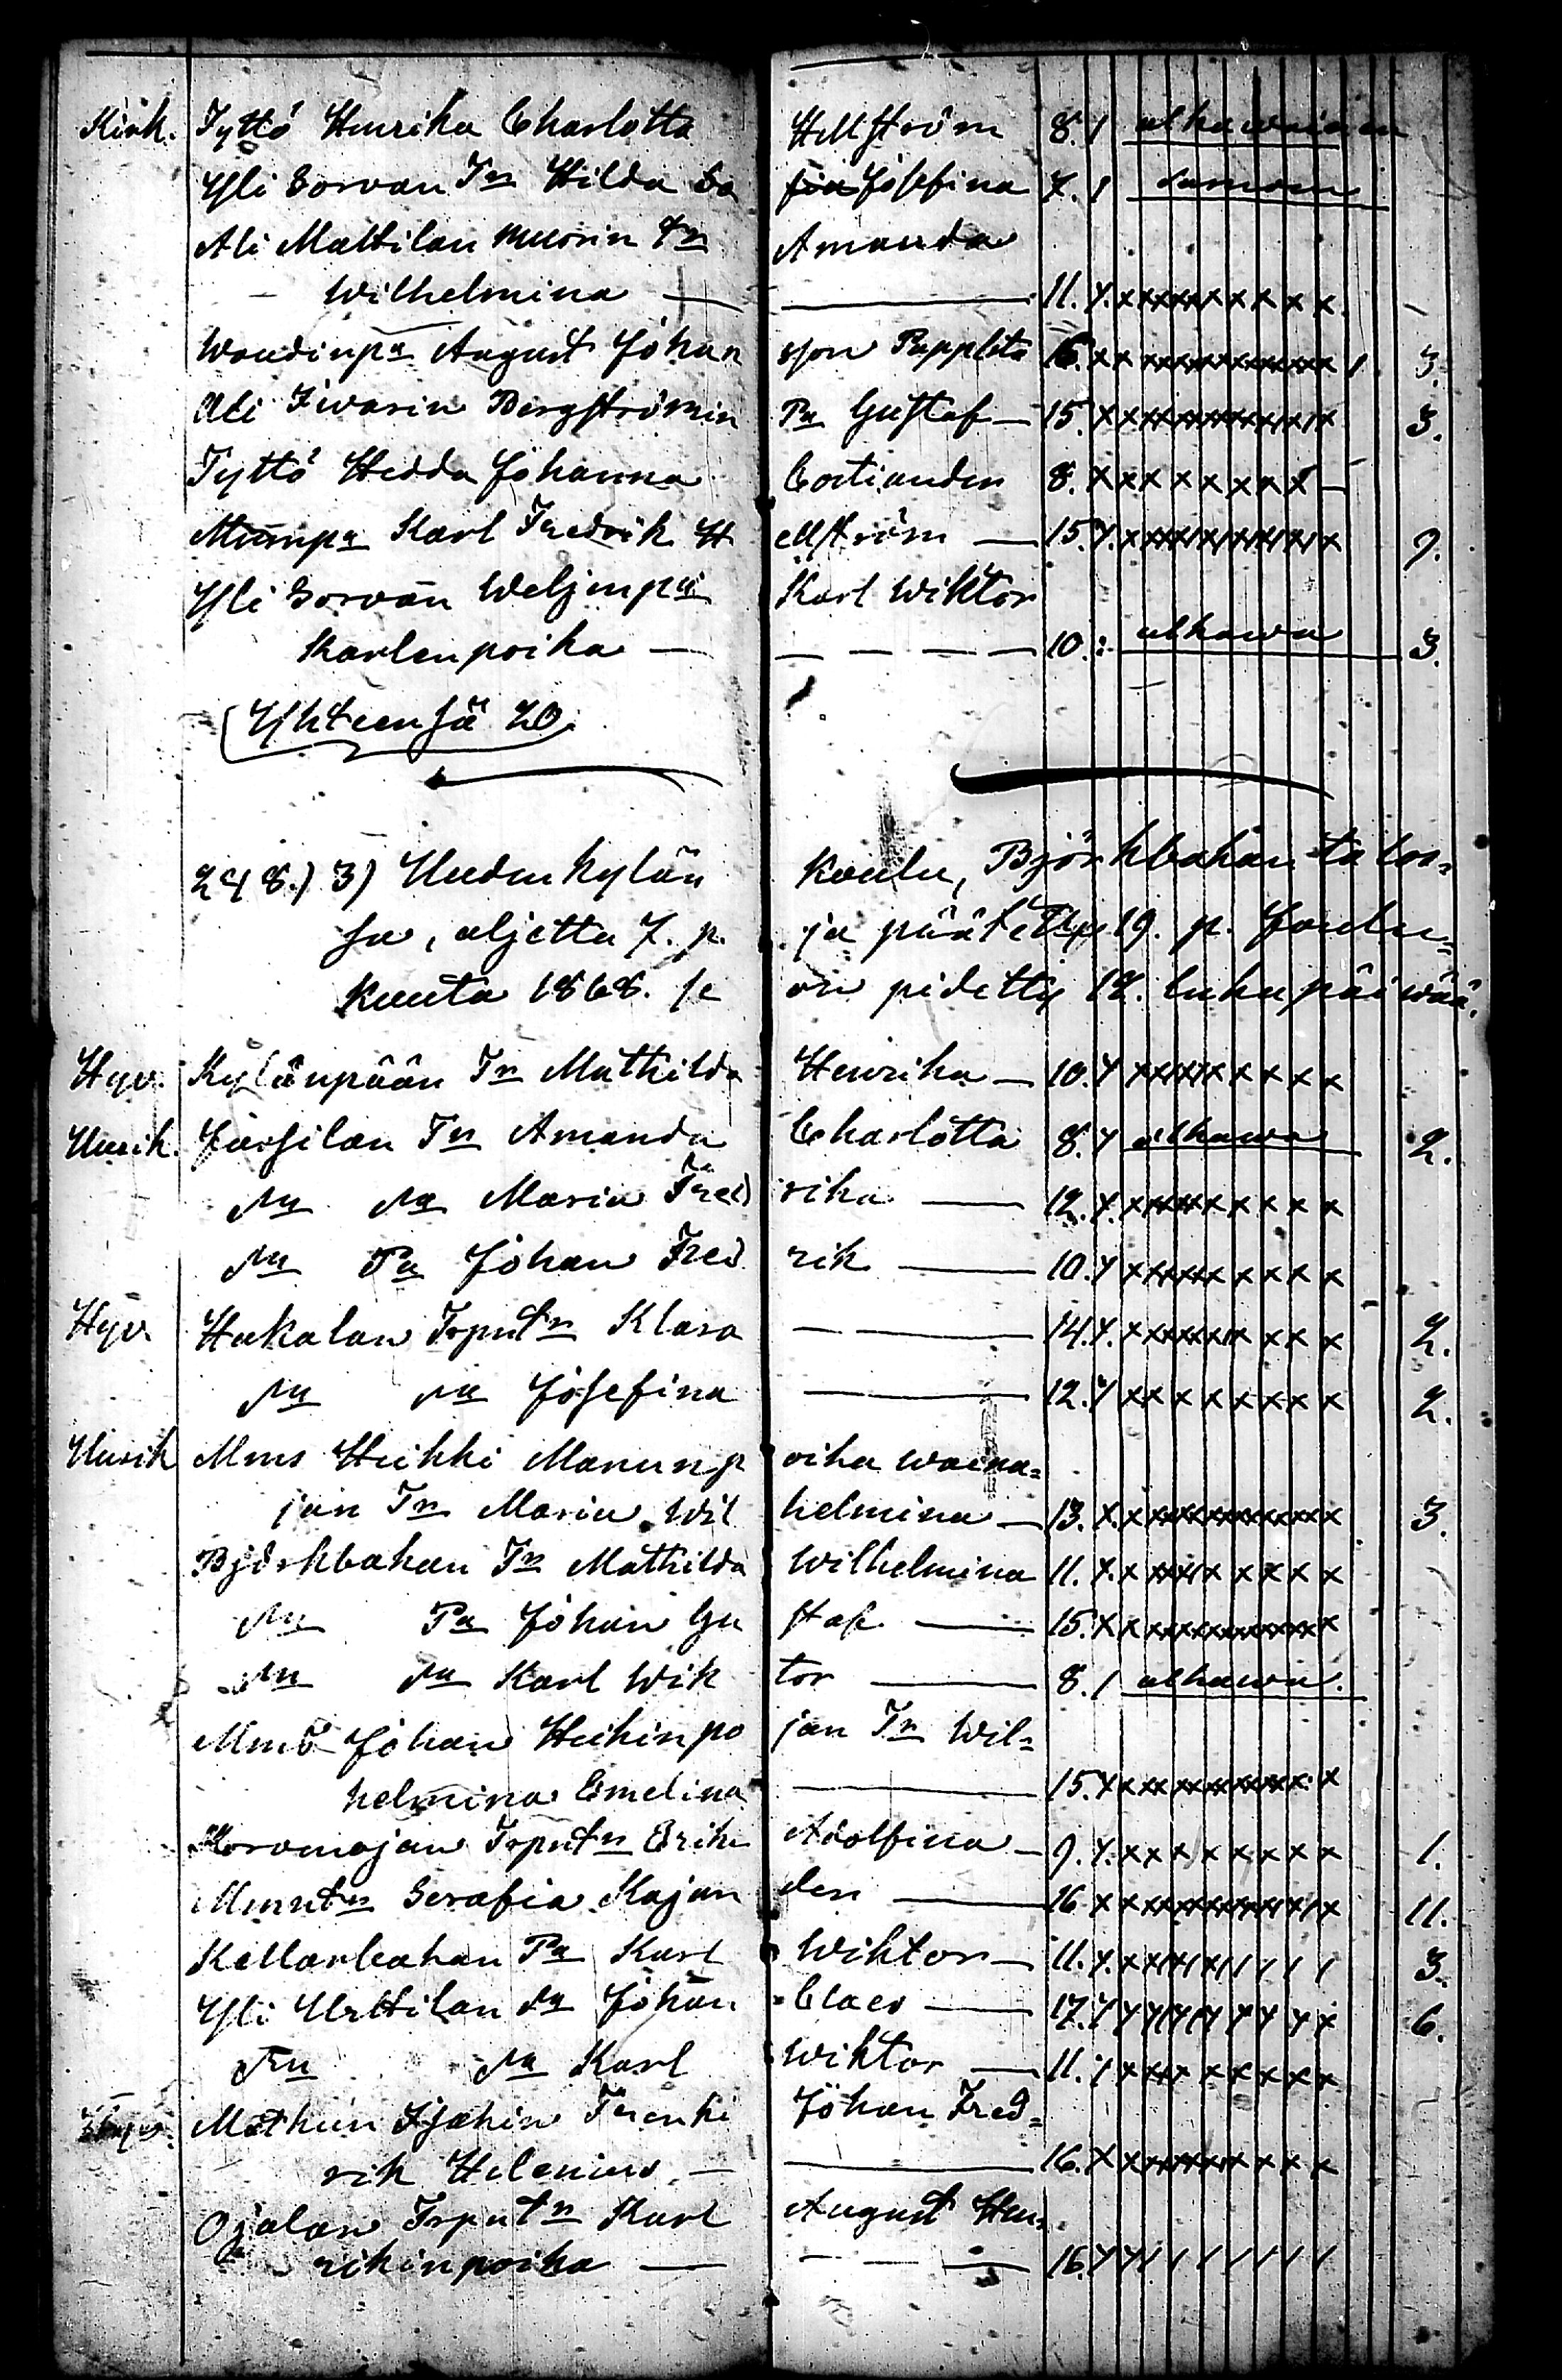 Kirk. Tyttö Henrika Charlotta Hellström 8. / alkawainen
Yli Sorvan Tr Hilda So fia Josefina 7. / samoin
Ali Mattilan muorin tr Amanda
Wilhelmina — — 11. y. x x x x x x x x x x
Woudinpa August Johan sson Papplota 16. x x x x x x x x x x x x x / 3.
Ali Iivarin Bergströmin Pa Gustaf — 15. x x x x x x x x x x x x x 3.
Tyttö Hedda Johanna 8. x x x x x x x x x —
Mmnpa Karl Fredrik H ellström — 15. y. x x x x x x x x x x x x 9.
Yli Sorvan Weljenpa Karl Wiktor
Karlenpoika — — — — — 10. : alkawa 3.
Yhteensä 20.
248.) 3) Uudenkylän koulu, Björkbakan taloo-
sa, aljettu 7. p. ja päätetty 19. p. Joulu-
kuuta 1868. se on pidetty 12. lukupäiwää.
Hyv. Kylänpään Tr Mathilda Henrika — 10. y x x x x x x x x x
Uusik. Jussilan Tr Amanda Charlotta 8. y alkawa 2.
sa sa Maria Fred rika — 12. y. x x x x x x x x x
sa Pa Johan Fred rik — 10. y x x x x x x x x x x
Hyv. Hakalan Trputr Klara — — 14. y. x x x x x x x x x x 2.
sa sa Josefina — 12. y x x x x x x x x x 2.
Uusik Mms Heikki Manunp oika waina-
jan Tr Maria Wil helmina — 13. x. x x x x x x x x x x x x 3.
Björkbakan Tr Mathilda Wilhelmina 11. y. x x x x x x x x x
sa Pa Johan Gu staf — 15. x x x x x x x x x x x x
sa sa Karl Wik tor — 8. / alkawa.
Mms Johan Heikinpo jan Tr Wil-
helmina Emelina — 15. y x x x x x x x x x x x
Korvenojan Trputr Erika Adolfina — 9. y. x x x x x x x x x 1.
Mmntr Serafia Kajan der — 16 x x x x x x x x x x x x 11.
Kellarbakan Pa Karl Wiktor — 11. y. x x x x x / / / / / 3.
Yli Urttilan sa Johan Claes — 17. y y y y y y y y y x 6.
sa sa Karl Wiktor — 11. y x x x x x x x x x
Hyv. Mathin Isakin Frenki Johan Fred-
rik Helenius — — 16. x x x x x x x x x x x
Ojalan Trputr Karl August Hen-
rikinpoika — — — — 16. y y / / / / / / /